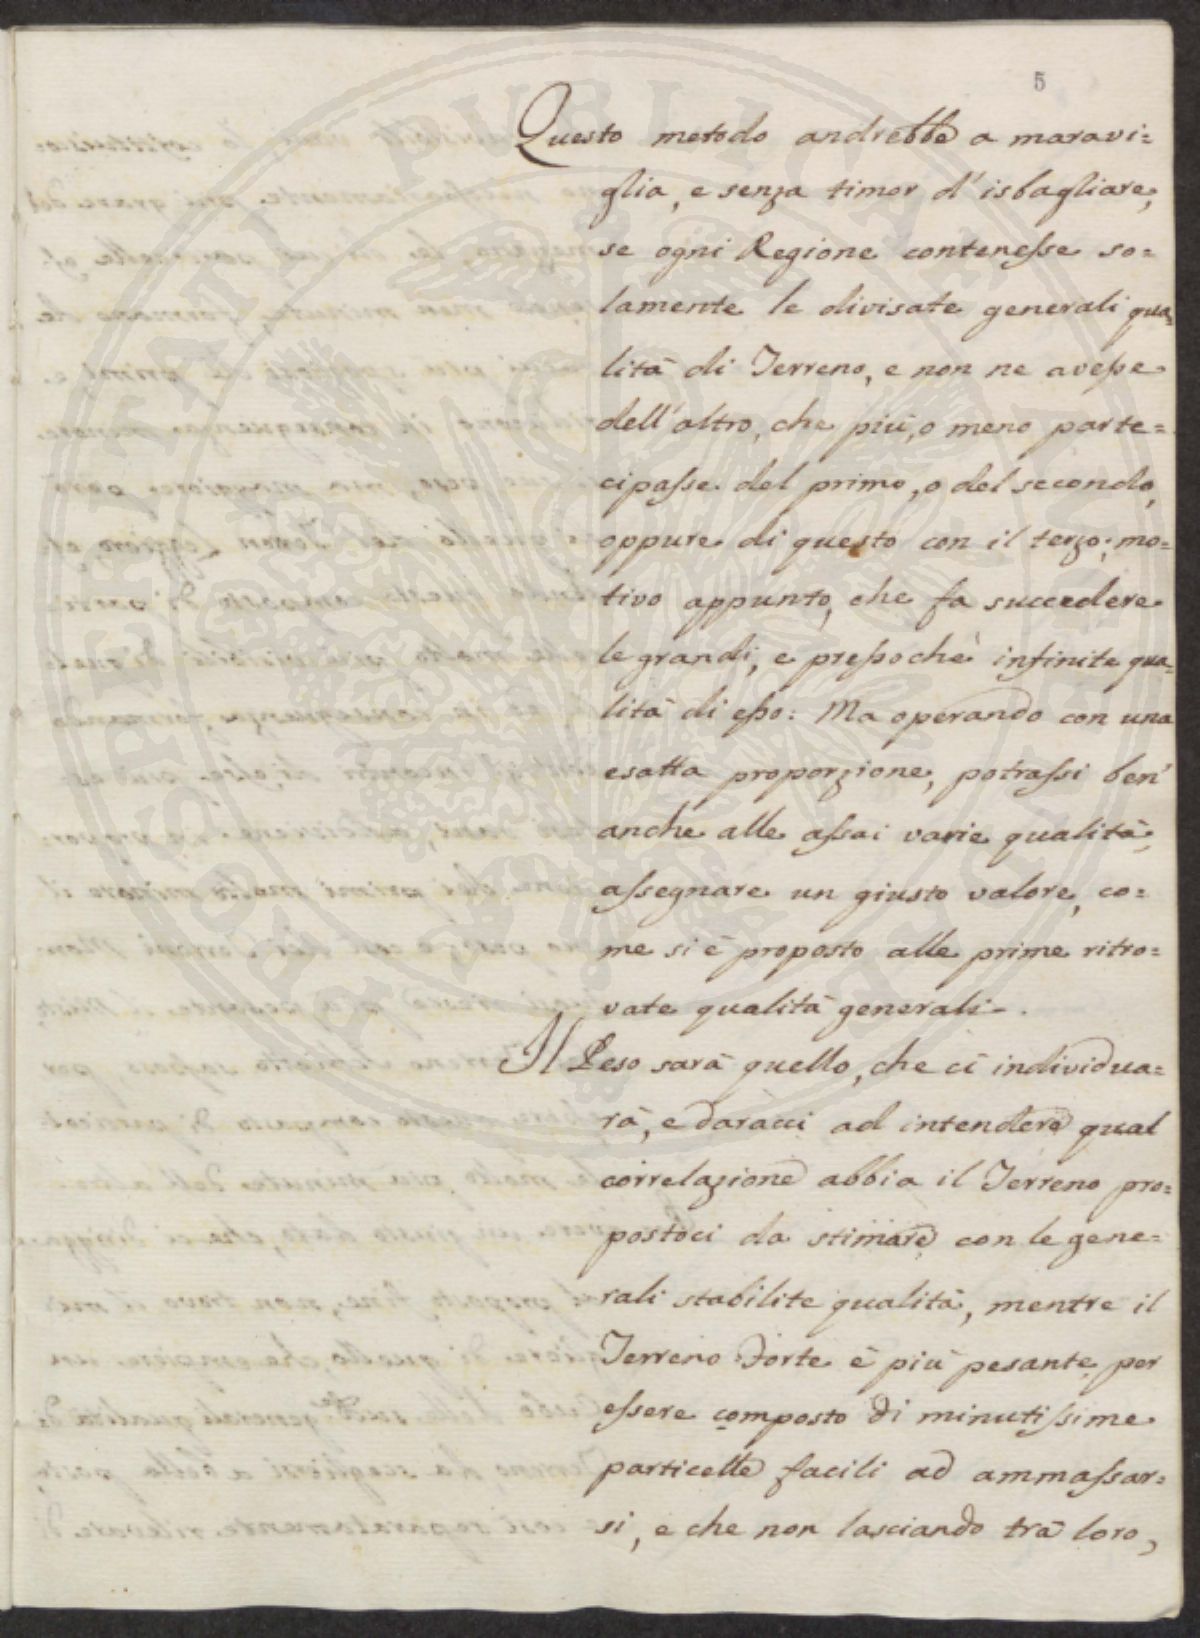 5
Questo metodo andrebbe a maravi=
glia, e senza timor d'isbagliare,
se ogni Regione contenesse so=
lamente le divisate generali qua=
lità di Terreno, e non ne avesse
dell'altro, che più, o meno parte=
cipasse del primo, o del secondo,
oppure di questo con il terzo; mo=
tivo appunto, che fa succedere
le grandi, e pressochè infinite qua=
lità di esso: Ma operando con una
esatta proporzione, potrassi ben'
anche alle assai varie qualità,
assegnare un giusto valore, co=
me si è proposto alle prime ritro=
vate qualità generali.
Il Peso sarà quello, che ci individua=
rà, e daracci ad intendere qual
correlazione abbia il Terreno pro=
postoci da stimare con le gene=
rali stabilite qualità, mentre il
Terreno Forte è più pesante, per
essere composto di minutissime
particelle facili ad ammassar=
si, e che non lasciando trà loro,